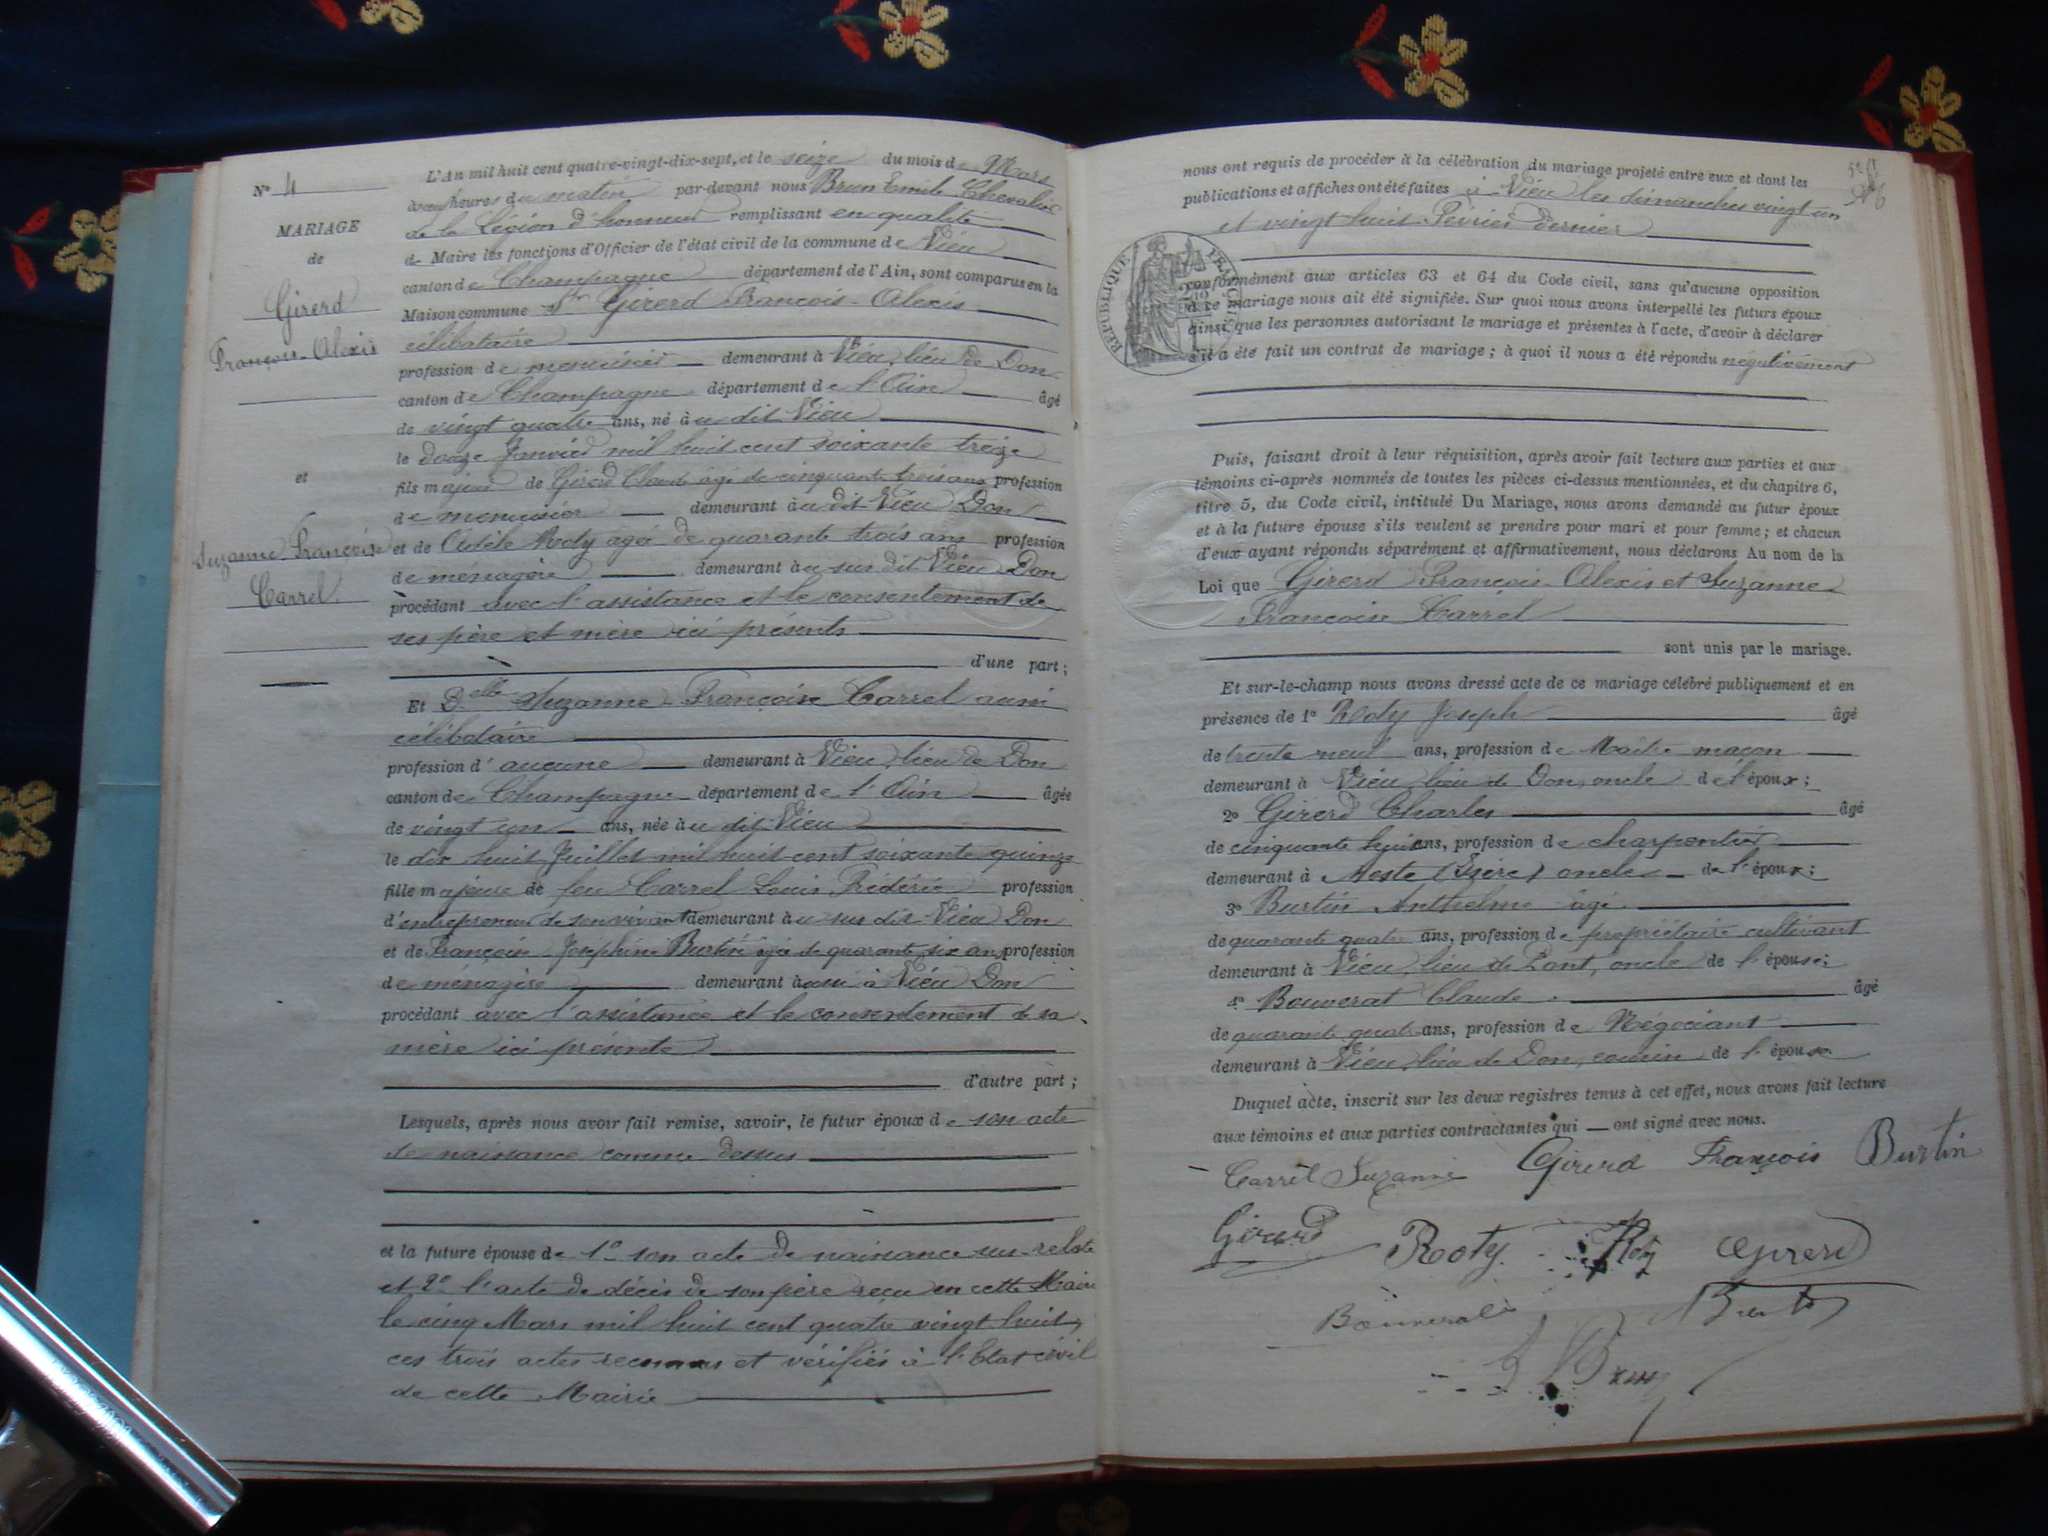 Nº 4
MARIAGE
de
Girerd
François-Alexis
et
Suzanne Françoise
Carrel
L'An mil huit cent quatre-vingt-dix-sept, et le seize du mois de Mars
heures du matin par-devant nous Brun Emile Chevalier
de la Légion d'honneur remplissant en qualité
de Maire les fonctions d'Officier de l'état civil de la commune de Vieu
canton de Champagne département de l'Ain, sont comparus en la
Maison commune Sr Girerd François-Alexis
célibataire
profession de menuisier demeurant à Vieu, lieu de Don
canton de Champagne département de l'Ain âgé
de vingt quatre ans, né à u dit Vieu
le douze Janvier mil huit cent soixante treize
fils majeur de Girerd Claude âgé de cinquante trois ans profession
de menuisier demeurant à u dit Vieu Don
et de Adèle Roty âgée de quarante trois ans profession
de ménagère demeurant à u sus dit Vieu Don
procédant avec l'assistance et le consentement de
ses père et mère ici présents
d'une part ;
Et Delle Suzanne Françoise Carrel aussi
célibataire
profession d'aucune demeurant à Vieu, lieu de Don
canton de Champagne département de l'Ain âgée
de vingt un ans, née à u dit Vieu
le dix huit Juillet mil huit cent soixante quinze
fille majeure de feu Carrel Louis Frédéric profession
d'entrepreneur de son vivant demeurant à u sus dit Vieu Don
et de Françoise Josephine Burtin âgée de quarante six ans profession
de ménagère demeurant aussi à Vieu Don
procédant avec l'assistance et le consentement de sa
mère ici présente
d'autre part ;
Lesquels, après nous avoir fait remise, savoir, le futur époux de son acte
de naissance comme dessus
et la future épouse de 1º son acte de naissance sus-relaté
et 2º l'acte de décès de son père reçu en cette Mairie
le cinq Mars mil huit cent quatre vingt huit,
ces trois actes reconnus et vérifiés à l'Etat civil
de cette Mairie
nous ont requis de procéder à la célébration du mariage projeté entre eux et dont les
publications et affiches ont été faites à Vieu les dimanches vingt un
et vingt huit Février dernier
RÉPUBLIQUE FRANÇAISE
conformément aux articles 63 et 64 du Code civil, sans qu'aucune opposition
à ce mariage nous ait été signifiée. Sur quoi nous avons interpellé les futurs époux
ainsi que les personnes autorisant le mariage et présentes à l'acte, d'avoir à déclarer
s'il a été fait un contrat de mariage ; à quoi il nous a été répondu négativement
Puis, faisant droit à leur réquisition, après avoir fait lecture aux parties et aux
témoins ci-après nommés de toutes les pièces ci-dessus mentionnées, et du chapitre 6,
titre 5, du Code civil, intitulé Du Mariage, nous avons demandé au futur époux
et à la future épouse s'ils veulent se prendre pour mari et pour femme ; et chacun
d'eux ayant répondu séparément et affirmativement, nous déclarons Au nom de la
Loi que Girerd François-Alexis et Suzanne
Françoise Carrel
sont unis par le mariage.
Et sur-le-champ nous avons dressé acte de ce mariage célébré publiquement et en
présence de 1º Roty Joseph âgé
de trente neuf ans, profession de Maître maçon
demeurant à Vieu, lieu de Don, oncle de l'époux ;
2º Girerd Charles âgé
de cinquante huit ans, profession de charpentier
demeurant à (Isère) oncle de l'époux ;
3º Burtin Anthelme âgé
de quarante quatre ans, profession de propriétaire cultivant
demeurant à Vieu, lieu de Pont, oncle de l'épouse ;
4º Bouverat Claude âgé
de quarante quatre ans, profession de Négociant
demeurant à Vieu, lieu de Don, cousin de l'épouse
Duquel acte, inscrit sur les deux registres tenus à cet effet, nous avons fait lecture
aux témoins et aux parties contractantes qui ont signé avec nous.
Carrel Suzanne Girerd François Burtin
Girerd Roty Roty Girerd
Bouverat Burtin
E Brun